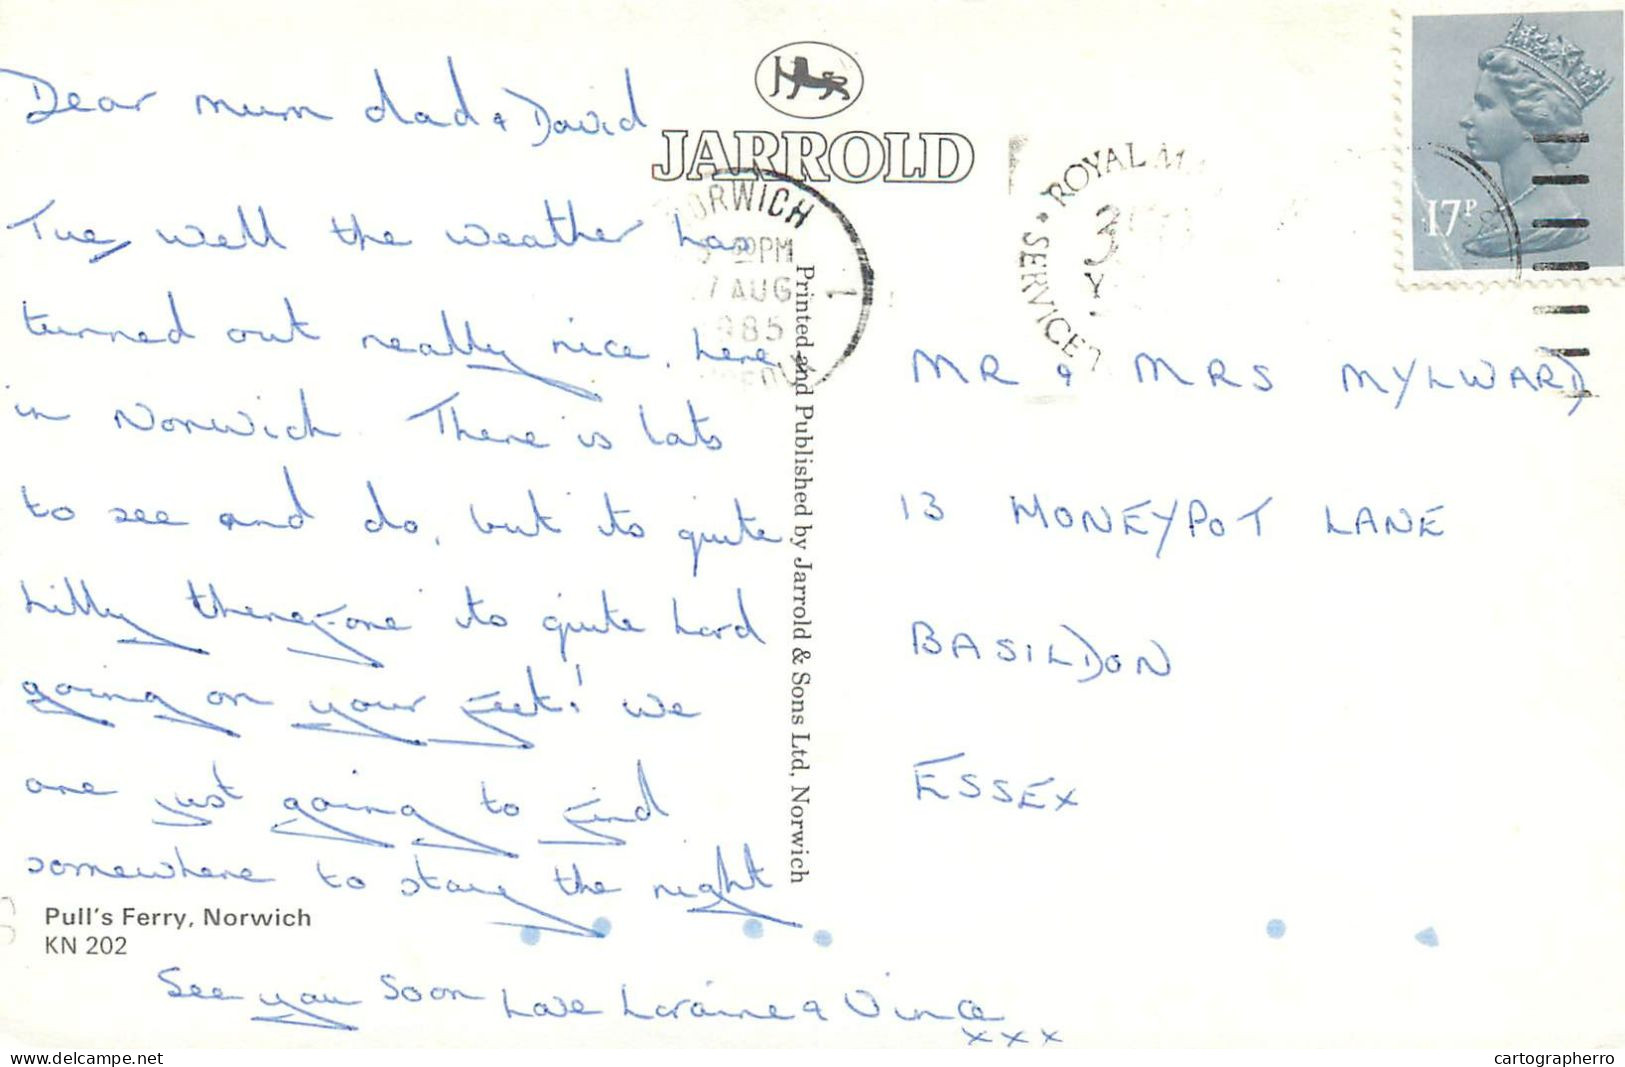 Dear mum dad & David
Tues, well the weather has
turned out really nice, here,
in Norwich. There is lots
to see and do, but its quite
hilly therefore its quite hard
going on your feet! we
are just going to find
somewhere to stay the night
Pull's Ferry, Norwich
KN 202
See you soon Love Loraine & Vince
xxx
JARROLD
NORWICH
PM
7 AUG
1985
Printed and Published by Jarrold & Sons Ltd, Norwich
ROYAL
SERVICE
17P
MR & MRS MYLWARD
13 MONEYPOT LANE
BASILDON
ESSEX
delcampe.net
cartographerro